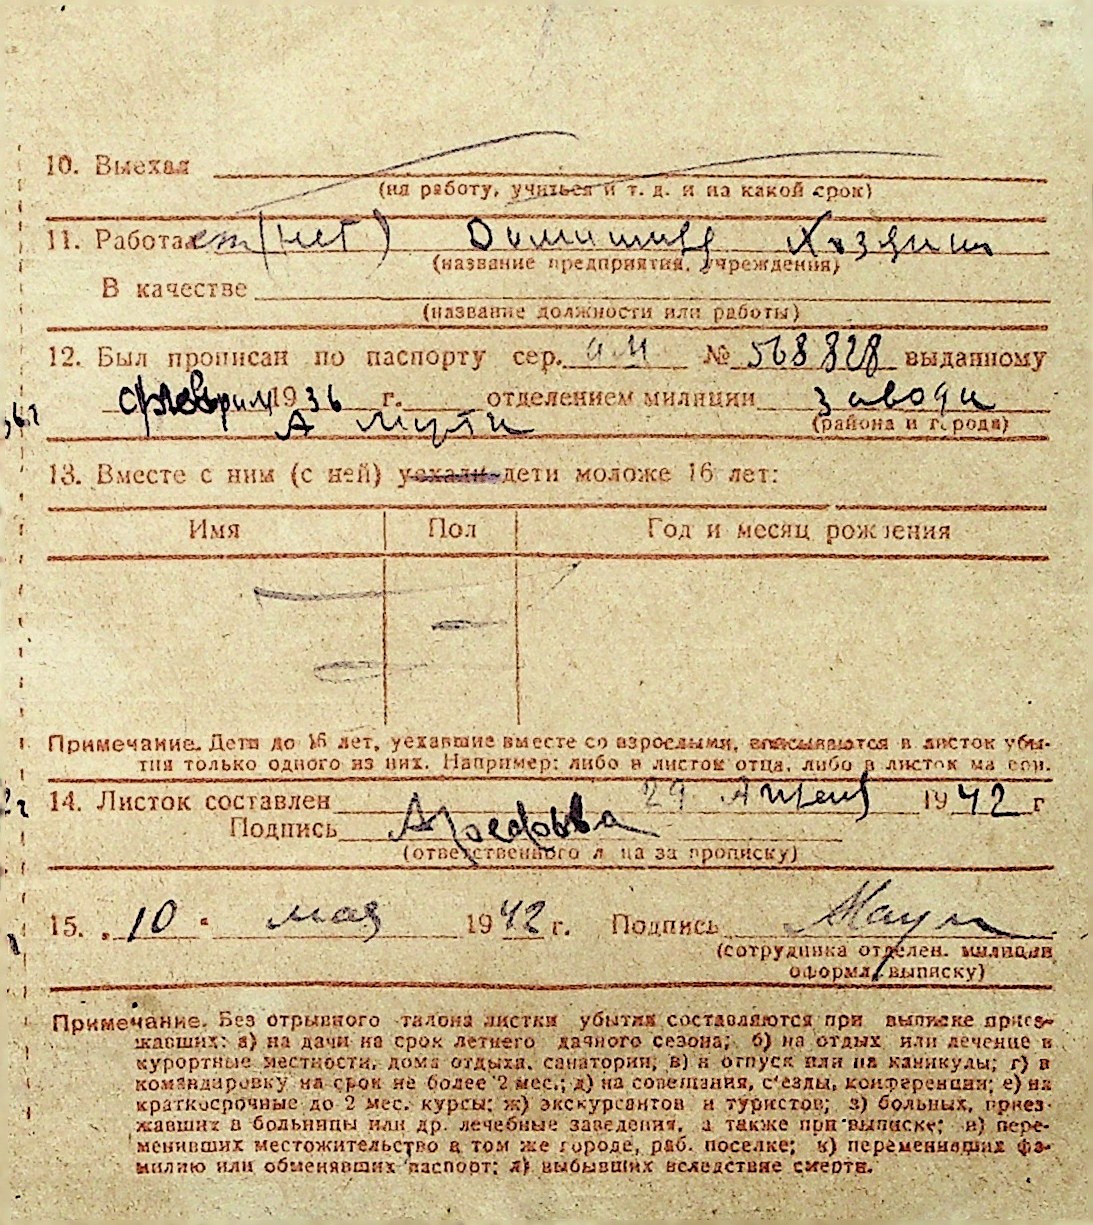 10. Выехал
(на работу, учиться и т. д. и на какой срок)
11. Работает (нет) Домашняя Хозяин
(название предприятия, учреждения)
В качестве
(название должности или работы)
12. Был прописан по паспорту сер. № 568828 выданному
1936 г. отделением милиции
(района и города)
13. Вместе с ним (с ней) уехали дети моложе 16 лет:
Имя Пол Год и месяц рождения
Примечание. Дети до 16 лет, уехавшие вместе со взрослыми, вписываются в листок убы-
тия только одного из них. Например: либо в листок отца, либо в листок матери.
14. Листок составлен 29 Апреля 1942 г
Подпись
(ответственного лица за прописку)
15. „ 10 " мая 1942 г. Подпись
(сотрудника отделен. милиции
оформл. выписку)
Примечание. Без отрывного талона листки убытия составляются при выписке приез-
жавших: а) на дачи на срок летнего дачного сезона; б) на отдых или лечение в
курортные местности, дома отдыха, санатории; в) в отпуск или на каникулы; г) в
командировку на срок не более 2 мес.; д) на совещания, с'езды, конференции; е) на
краткосрочные до 2 мес. курсы; ж) экскурсантов и туристов; з) больных, приез-
жавших в больницы или др. лечебные заведения, а также при выписке; и) пере-
менивших местожительство в том же городе, раб. поселке; к) переменивших фа-
милию или обменявших паспорт; л) выбывших вследствие смерти.